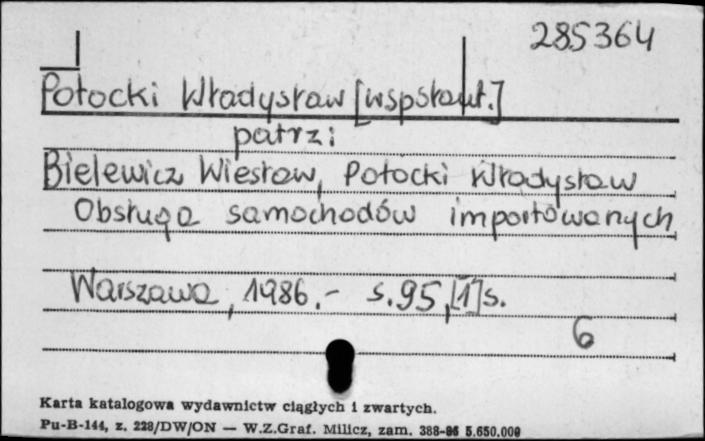 285364
Potocki Władysław [wspłaut.]
patrz:
Bielewicz Wiesław, Potocki Władysław
Obsługa samochodów importowanych
Warszawa, 1986.- s.95,[1]s.
6
Karta katalogowa wydawnictw ciągłych i zwartych.
Pu-B-144, z. 228/DW/ON — W.Z.Graf. Milicz, zam. 388-86 5.650.000